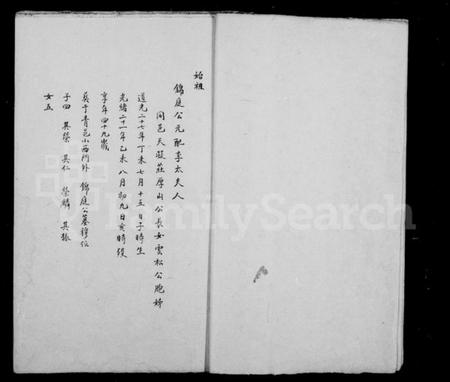 始祖
錦庭公元配李太夫人
同邑天凝莊厚山公長女雲松公胞姊
道光二十七年丁未七月十五日子時生
光緒二十一年乙未八月初九日亥時歿
享年四十九歲
葬于青邑小西門外 錦庭公墓穆位
子四 其榮 其仁 榮麟 其振
女五
FamilySearch